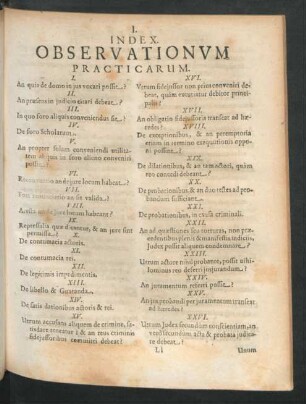 I.
INDEX
OBSERVATIONVM
PRACTICARUM.
I.
An quis de domo in jus vocari possit...?
II.
An præsens in judicio citari debeat...?
III.
In quo foro aliquis conveniendus sit...?
IV.
De foro Scholarum...
V.
An propter
conveniendi
possit...?
VI.
de jure locum habeat...?
VII.
valida...?
VIII.
locum habeant?
IX.
Repressaliæ quæ dicantur, & an jure sint
permissæ.
X.
De contumacia actoris.
XI.
De contumacia rei.
XII.
De legitimis impedimentis.
XIII.
De libello &
XIV.
De satisdationibus actoris & rei.
XV.
Utrum accusans aliquem de crimine, sa-
tisdare teneatur? & an reus criminis
fidejussoribus committi debeat?
XVI.
Utrum fidejussor non prius conveniri de-
beat, quàm
debitor princi-
palis?
XVII.
An obligatio fidejussoria transeat ad hæ-
redem?
XVIII.
De exceptionibus, & an peremptoria
etiam in termino
oppo-
ni possint...?
XIX.
De dilationibus, & an tam actori, quàm
reo concedi debeat...?
XX.
De probationibus & an duo testes ad pro-
bandum sufficiant...
XXI.
De probationibus, in causis criminali.
XXII.
An ad quæstiones seu torturas, non præ-
cedentibus
manifestis indiciis,
Judex possit aliquem condemnare...?
XXIII.
Utrum actore nihil probante, possit
reo deferri jusjurandum...?
XXIV.
An juramentum referri possit...?
XXV.
An jus probandi per juramentum transeat
ad hæredes?
XXVI.
Utrum Judex secundum conscientiam, an
verò secundum acta & probata judica-
re debeat...?
Ll
Utrum